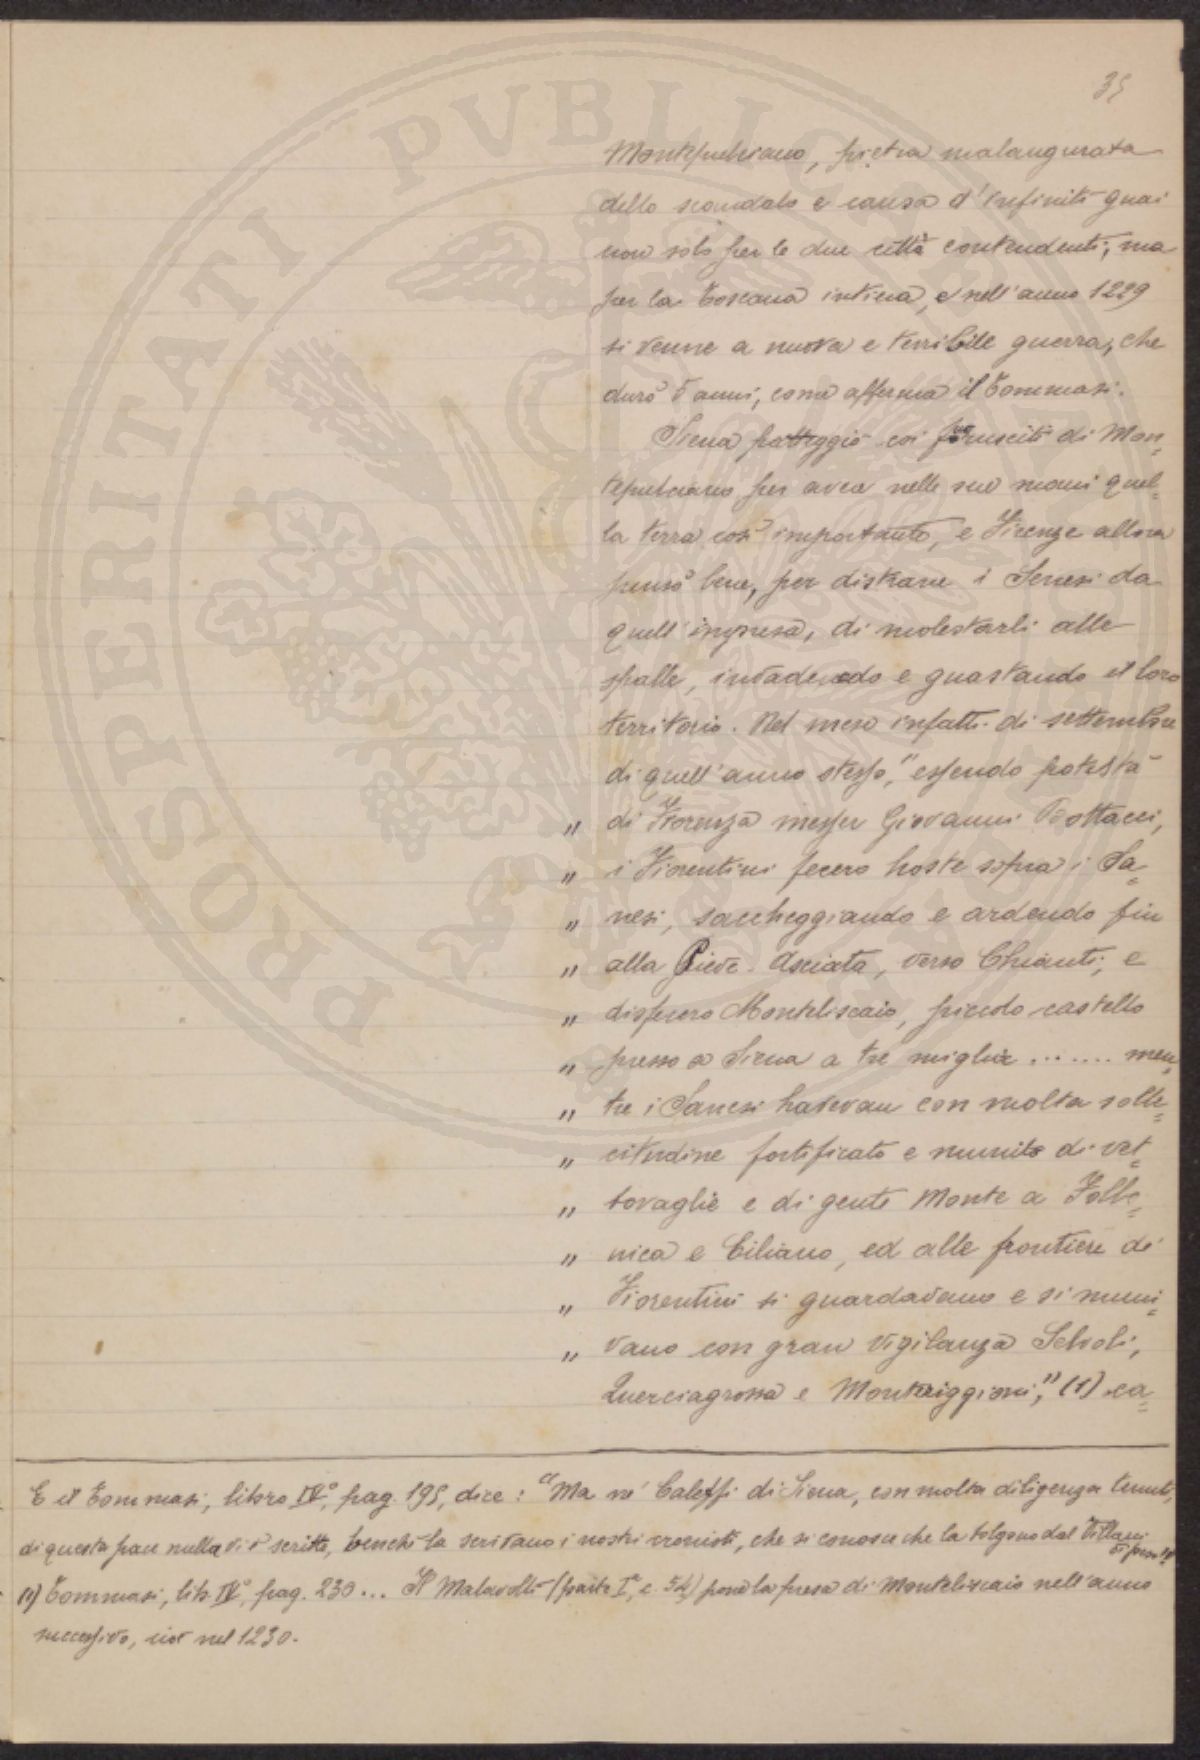 35
Montepulciano, pietra malaugurata
dello scandalo e causa d'infiniti guai
non solo per le due città contendenti, ma
per la Toscana intiera, e nell'anno 1229
si venne a nuova e terribile guerra, che
durò 5 anni, come afferma il Tommasi.
Siena patteggiò coi foruscití di Mon=
tepulciano per aver nelle sue mani quel=
la terra così importante, e Firenze allora
pensò bene, per distrarre i Senesi da
quell'impresa, di molestarli alle
spalle, invadendo e guastando il loro
territorio. Nel mese infatti di settembre
di quell'anno stesso, "essendo potestà
" di Fiorenza messer Giovanni Bottacci,
" i Fiorentini fecero hoste sopra i Sa=
" nesi, saccheggiando e ardendo fin
" alla Pieve Asciata, verso Chianti, e
" disfecero Monteliscaio, piccolo castello
" presso a Siena a tre miglia ....... men=
" tre i Sanesi havevan con molta solle=
" citudine fortificato e munito di vet=
" tovaglie e di genti Monte a Folle=
" nica e Ciliano, ed alle frontiere de'
" Fiorentini si guardavano e si muni=
" vano con gran vigilanza Selvoli,
Querciagrossa e Monteriggioni," (1) ca=
E il Tommasi, libro IV°, pag. 195, dice: "Ma ne' Caleffi di Siena, con molta diligenza tenuti,
di questa pace nulla vi è scritto, benchè la scrivano i nostri cronisti, che si conosce che la tolgono dal Villani
(1) Tommasi, lib. IV°, pag. 230... Il Malavolti (parte Iª, c. 54) pone la presa di Monteliscaio nell'anno
successivo, cioè nel 1230.
PROSPERITATI PVBLICAE